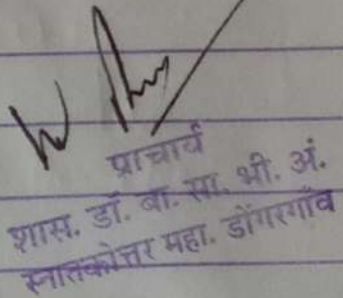 प्राचार्य
शास. डॉ. बा. सा. भी. अं.
स्नातकोत्तर महा. डोंगरगाँव